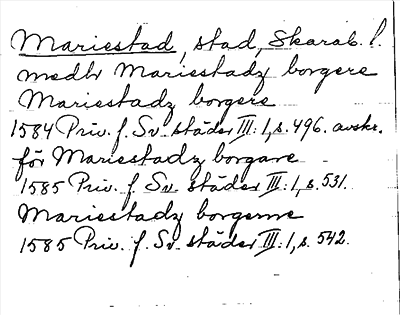 Mariestad, stad, Skarab. l.
medh Mariestadz borgere
Mariestadz borgere
1584 Priv. f. Sv. städer III: 1, s. 496. avskr.
för Mariestadz borgare
1585 Priv. f. Sv. städer III: 1, s. 531.
Mariestadz borgerne
1585 Priv. f. Sv. städer III: 1, s. 542.